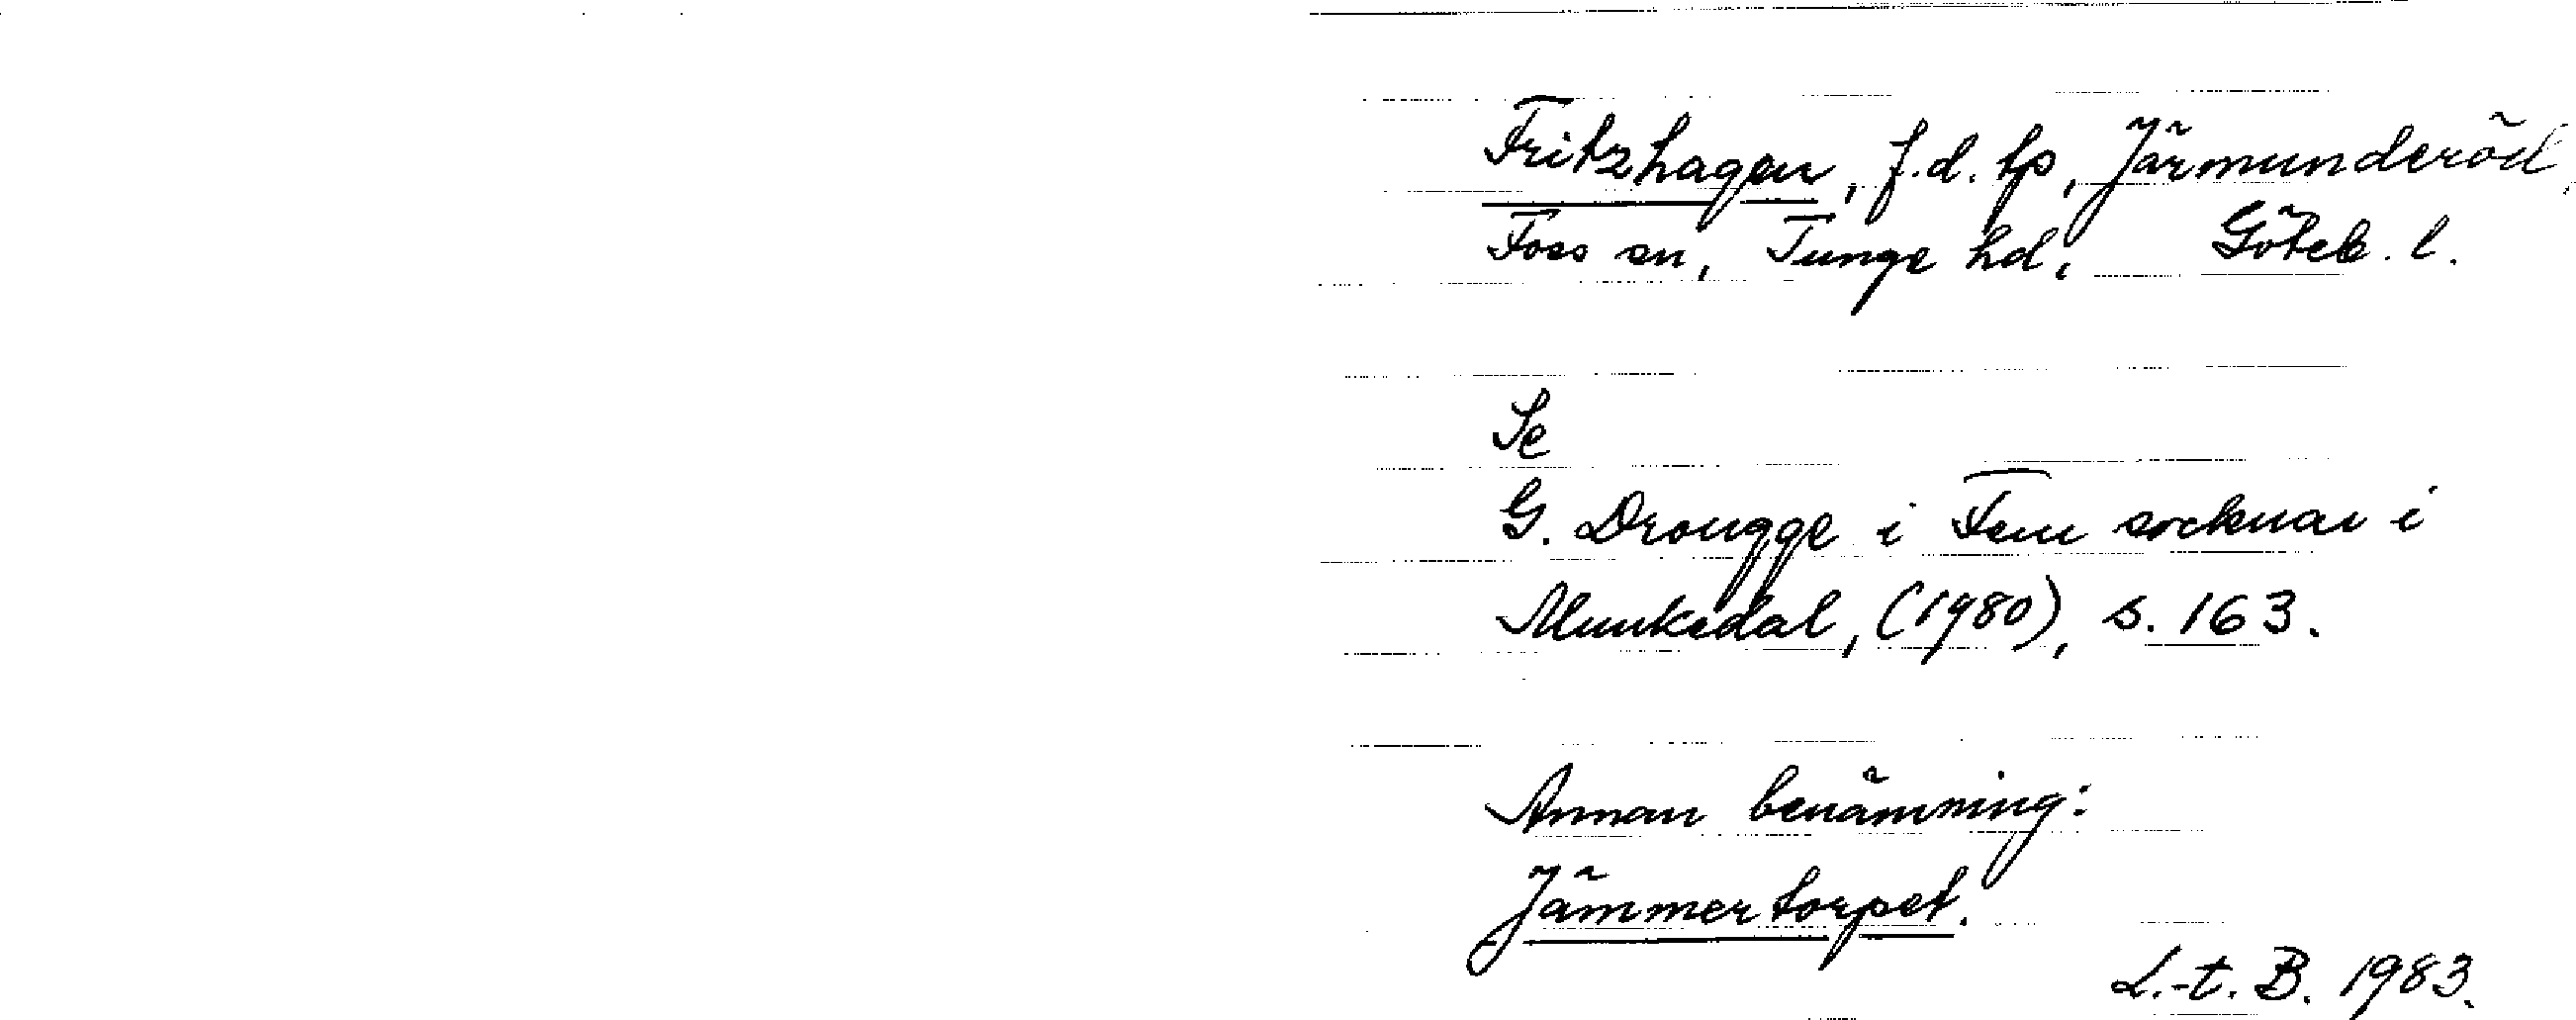 Fritzhagen, f.d. tp, Järmunderöd,
Foss sn, Tunge hd, Göteb. l.
Se
G. Drougge i Fem socknar i
Munkedal, (1980), s. 163.
Annan benämning:
Jämmertorpet.
L.-t. B. 1983.